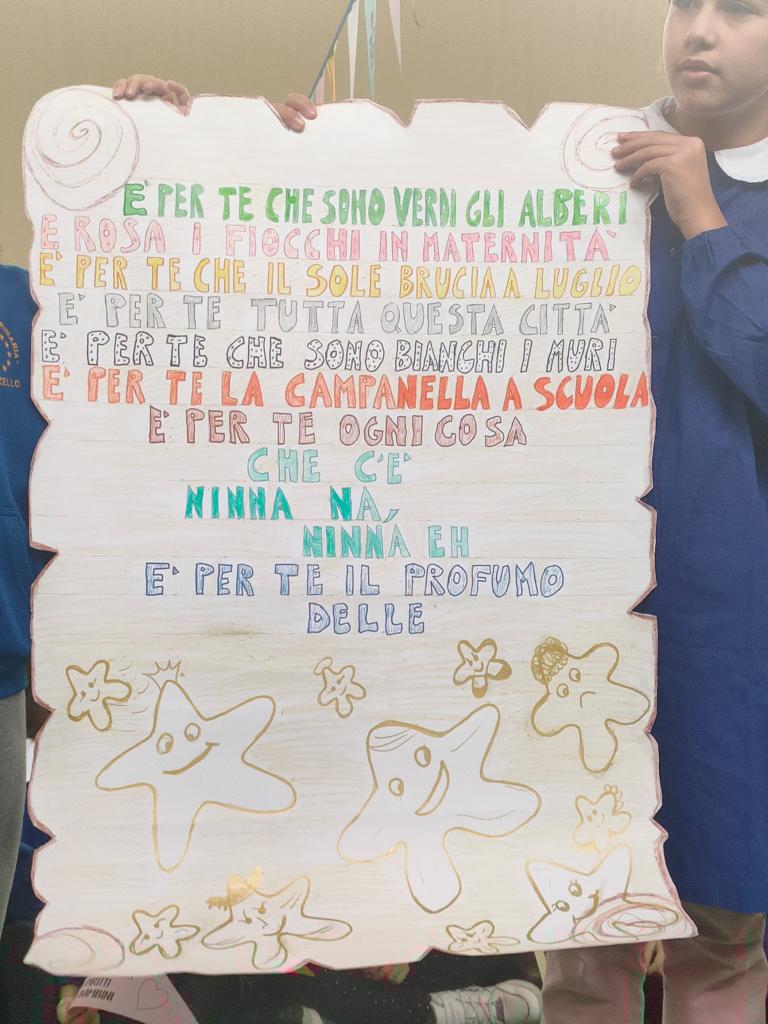 E' PER TE CHE SONO VERDI GLI ALBERI
E ROSA I FIOCCHI IN MATERNITÀ
E' PER TE CHE IL SOLE BRUCIA A LUGLIO
E' PER TE TUTTA QUESTA CITTÀ
E' PER TE CHE SONO BIANCHI I MURI
E' PER TE LA CAMPANELLA A SCUOLA
E' PER TE OGNI COSA
CHE C'E'
NINNA NA,
NINNA EH
E' PER TE IL PROFUMO
DELLE
BAMBINI